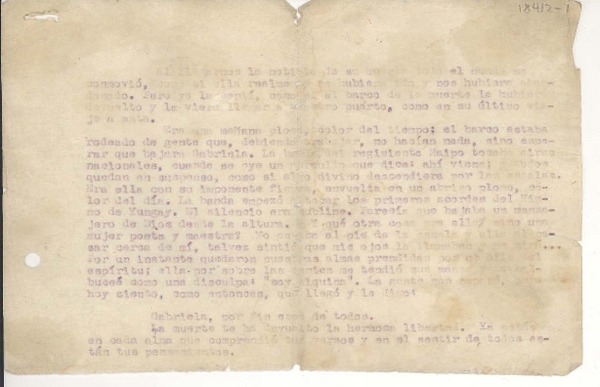 18412-1
Al llegarnos la noticia de su muerte todo el mundo se
conmovió, como si ella realmente se hubiera ido y nos hubiera aban-
donado. Pero yo la sentí, como si el barco de la muerte la hubiera
devuelto y la viera llegar a nuestro puerto, como en su último via-
je a esta.
Era una mañana plomo, color del tiempo; el barco estaba
rodeado de gente que, debiendo trabajar, no hacían nada, sino espe-
rar que bajara Gabriela. La banda del regimiento Maipo tocaba aires
nacionales, cuando se oye un murmullo que dice: ahí viene; y todos
quedan en suspenso, como si algo divino descendiera por las escalas.
Era ella con su imponente figura, envuelta en un abrigo plomo, co-
lor del día. La banda empezó a tocar los primeros acordes del Him-
no de Yungay. El silencio era sublime. Parecía que bajaba un mensa-
jero de Dios desde la altura. Y qué otra cosa era ella, sino una
mujer poeta y maestra? Yo estaba al pié de la escala y ella al pa-
sar cerca de mí, talvez sintió que mis ojos la llamaban
por un instante quedaron nuestras almas prendidas por el hilo del
espíritu; ella por sobre las gentes me tendió sus manos
buceó como una disculpa: "soy alguien". La gente nos separó
hoy siento, como entonces, que llegó y le digo:
Gabriela, por fin eres de todos.
La muerte te ha devuelto la hermosa libertad. Ya estás
en cada alma que comprendió tus versos y en el sentir de todos es-
tán tus pensamientos.